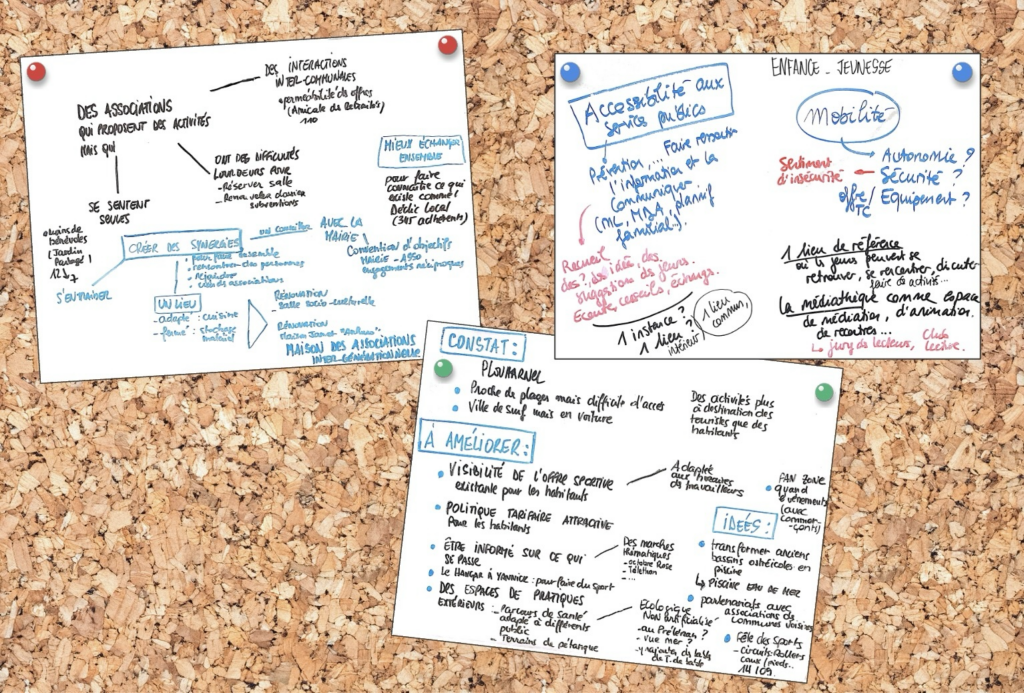 DES INTERACTIONS
INTER-COMMUNALES
perméabilité des offres
(Amicale des Retraités)
110
DES ASSOCIATIONS
QUI PROPOSENT DES ACTIVITÉS
MAIS QUI
ONT DES DIFFICULTÉS
LOURDEURS POUR
- Réserver salle
- Renouveler dossier
subventions
SE SENTENT
SEULES
moins de
bénévoles
(Jardin
Partagé)
S'ENTRAINER
MIEUX ÉCHANGER
ENSEMBLE
pour faire
connaître ce qui
existe comme
Déclic Local
(345 adhérents)
CRÉER DES SYNERGIES
pour faire ensemble
rencontrer des personnes
AVEC LA
MAIRIE
Convention d'objectifs
MAIRIE - ASSO
engagements réciproques
UN LIEU
- adapté : cuisine
- fermé : stockage
matériel
RÉNOVATION
Salle socio-culturelle
RÉNOVATION
MAISON DES ASSOCIATIONS
INTER-GÉNÉRATIONNELLE
ENFANCE - JEUNESSE
Accessibilité aux
service publics
Prévention,... Faire
l'information et la
Communiquer
(ML, MDA, planif
familial..)
Recueil
des ?, des idées, des
suggestions des jeunes.
Ecoute, conseils, échanges.
1 instance ?
1 lieu ?
intérieur
1 lieu
commun,
Mobilité
Sentiment
d'insécurité
Autonomie ?
Sécurité ?
offre/ Equipement ?
TC
1 lieu de référence
où les jeunes peuvent se
retrouver, se rencontrer, discuter
faire des activités...
La médiathèque comme espace
de médiation, d'animation.
de rencontres...
↳ jury de lecteurs, Club
lecture.
CONSTAT :
PLOUHARNEL
• Proche des plages mais difficile d'accès
• Ville de surf mais en voiture
Des activités plus
à destination des
touristes que des
habitants
À AMÉLIORER :
• VISIBILITÉ DE L'OFFRE SPORTIVE
existante pour les habitants
Adapté
aux horaires
des travailleurs
• POLITIQUE TARIFAIRE ATTRACTIVE
Pour les habitants
• ÊTRE INFORMÉ SUR CE QUI
SE PASSE
Des marches
thématiques
- octobre Rose
- Téléthon
- ...
• LE HANGAR À YANNICK : pour faire du sport
• DES ESPACES DE PRATIQUES
EXTÉRIEURS :
- Parcours de santé
adapté à différents
public
- Terrains de pétanque
Ecologique
Non artificialisé
- vue mer ?
• FAN ZONE
quand
événements
(avec
commer-
-çants)
IDEÉS :
• transformer anciens
bassins ostréicoles en
piscine
↳ PISCINE EAU DE MER
• partenariats avec
associations des
communes voisines
• Fête des Sports
- circuits Rollers
14/09.